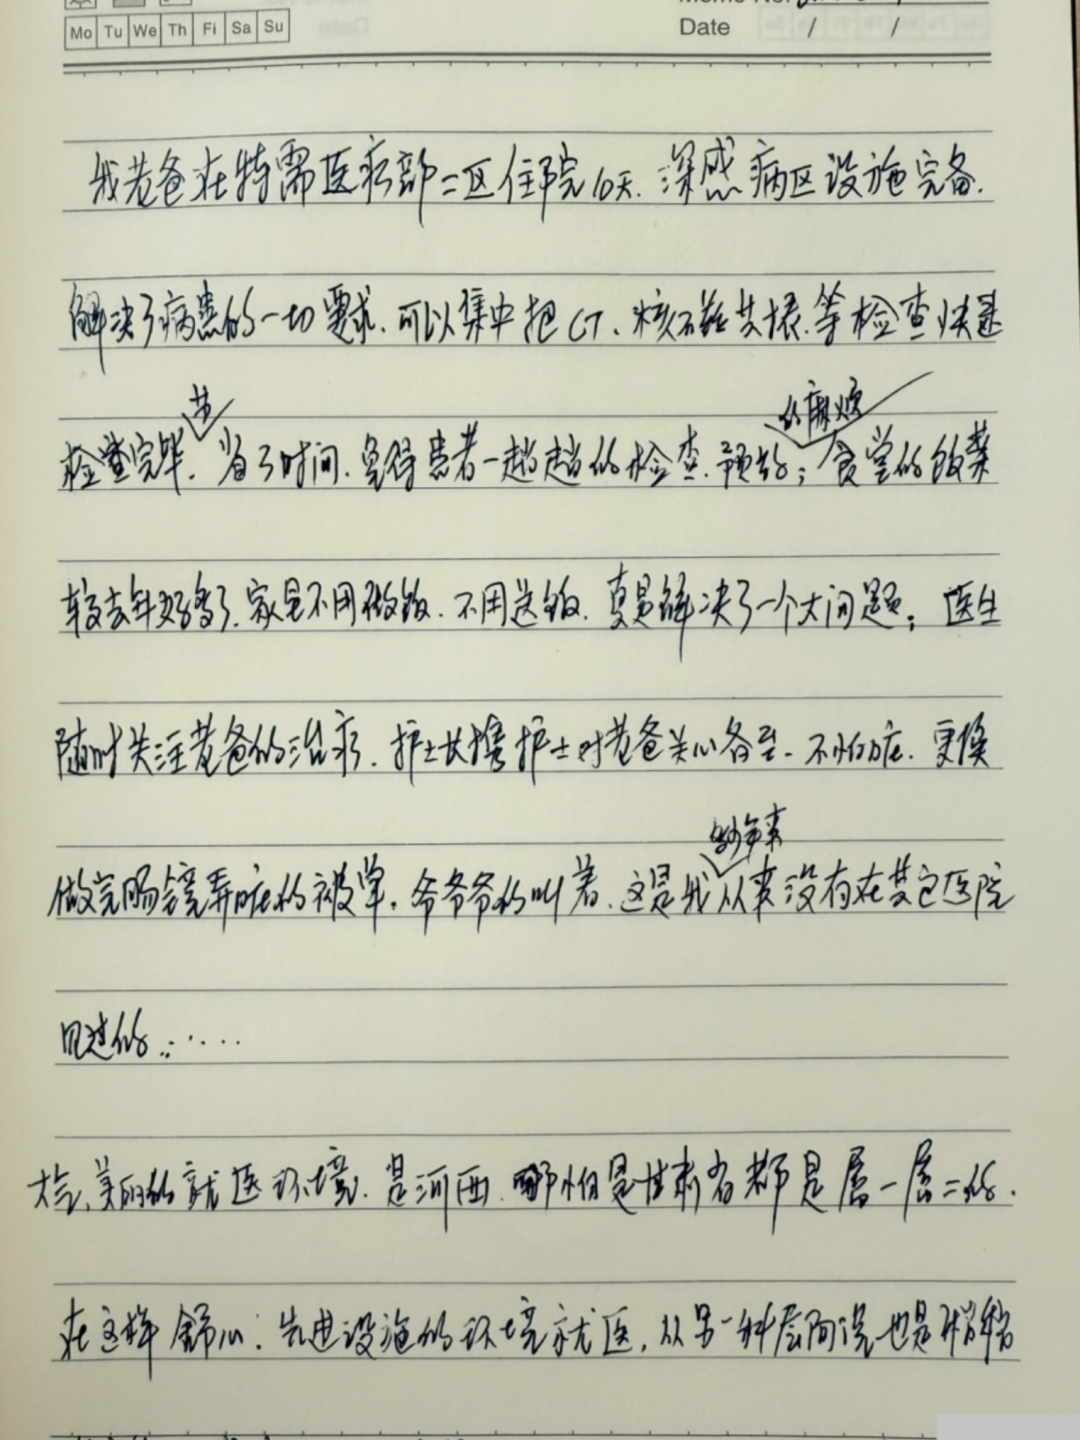 Mo Tu We Th Fi Sa Su
Memo No.
Date / /
我老爸在特需医疗部二区住院10天.深感病区设施完备.
解决了病患的一切要求.可以集中把CT、核磁共振.等检查快速
检查完毕.节省了时间.免得患者一趟趟的检查.预约的麻烦;食堂的饭菜
较去年好多了.家里不用做饭.不用送饭.真是解决了一个大问题;医生
随时关注老爸的治疗.护士长携护士对老爸关心备至.不怕脏.更换
做完肠镜弄脏的被单.爷爷爷的叫着.这是我多年来从来没有在其它医院
见过的......
大气、美丽的就医环境.是河西.哪怕是甘肃省都是属一属二的.
在这样舒心;先进设施的环境就医.从另一种层面说也是